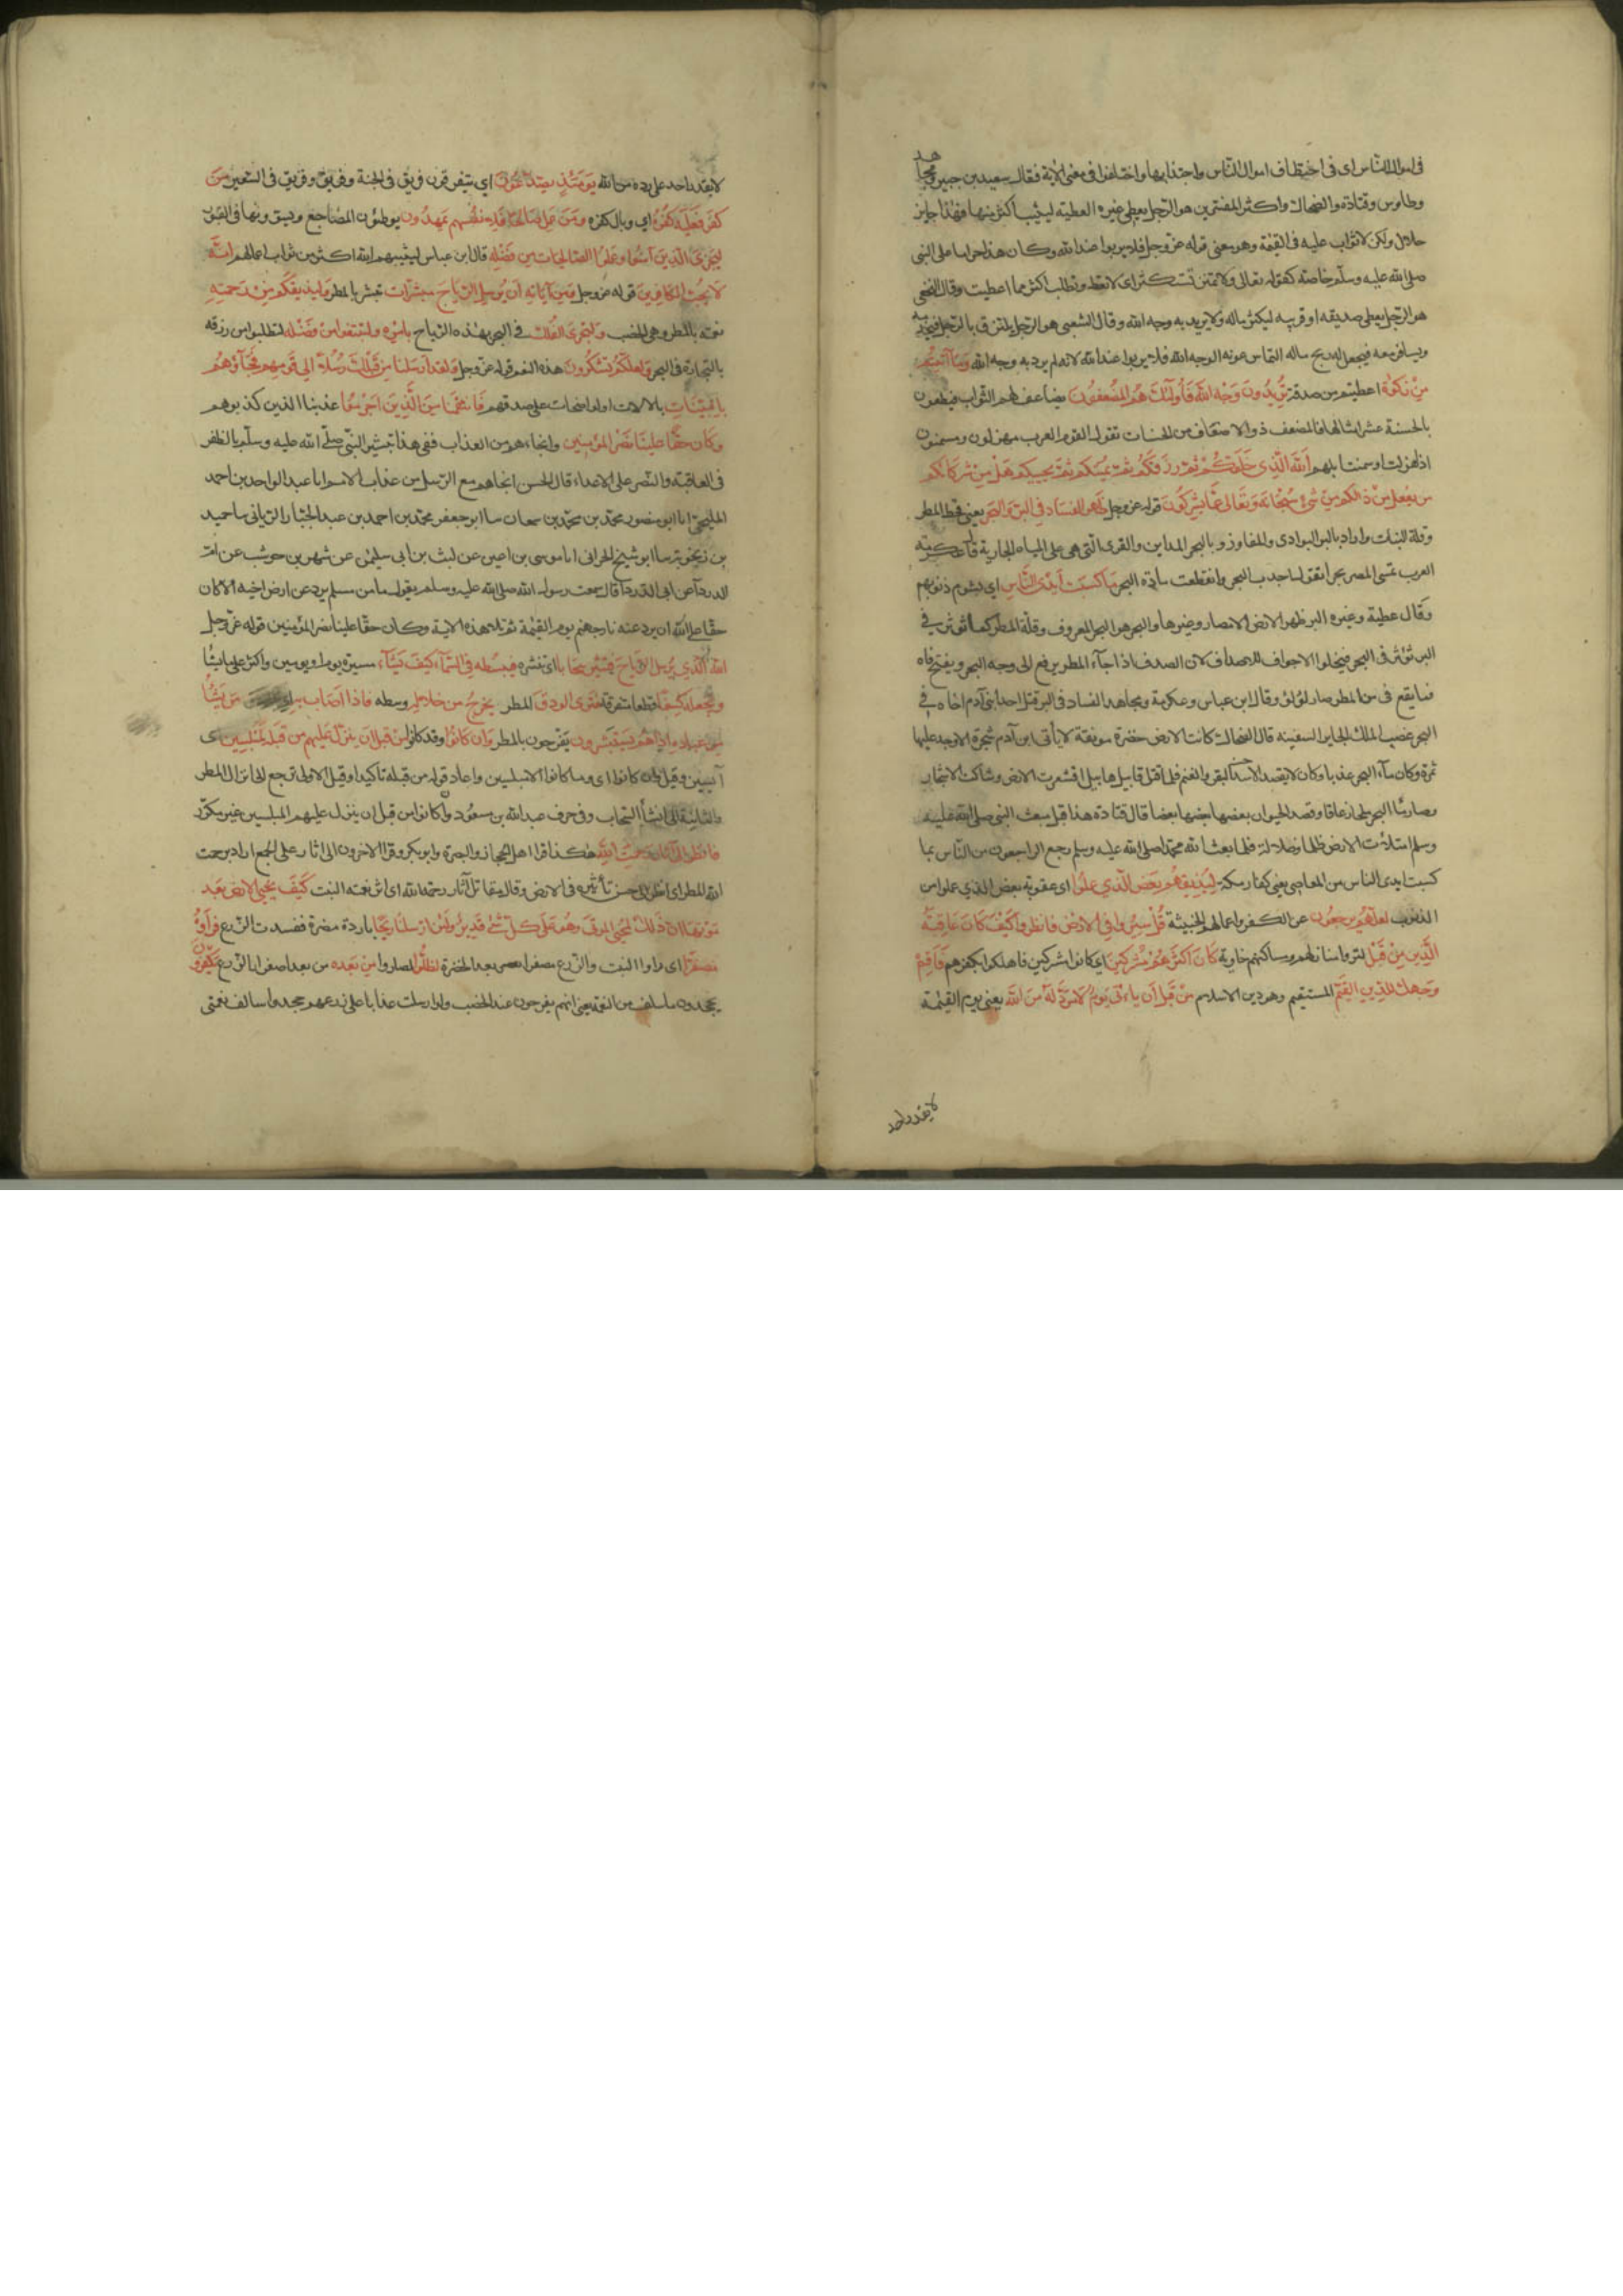 فى اموال الناس اى فى اختطاف اموال الناس واجتذابها واختلفوا فى معنى الآية فقال سعيد بن جبير ومجاهد
وطاوس وقتادة والضحاك واكثر المفسرين هو الرجل يعطى غيره العطية ليثيب اكثر منها فهذا جايز
حلال ولكن لا يثاب عليه فى القيمة وهو معنى قوله عز وجل فلا يربوا عند الله وكان هذا حراما على النبى
صلى الله عليه وسلم خاصة كقوله تعالى ولا تمنن تستكثر اى لا تعط وتطلب اكثر مما اعطيت وقال النخعى
هو الرجل يعطى صديقه او قريبه ليكثر ماله ولا يريد به وجه الله وقال الشعبى هو الرجل يلتزق بالرجل فيخدمه
ويسافر معه فيجعل له ربح ماله التماس عونه لا لوجه الله فلا يربوا عند الله لانه لم يرد به وجه الله وما آتيتم
من زكوة اعطيتم من صدقة تريدون وجه الله فأولئك هم المضعفون يضاعف لهم الثواب فيعطون
بالحسنة عشر امثالها فالمضعف ذو الاضعاف من الحسنات تقول العرب القوم مهزلون ومسمنون
اذا هزلت او سمنت ابلهم الله الذى خلقكم ثم رزقكم ثم يميتكم ثم يحييكم هل من شركائكم
من يفعل من ذلكم من شئ سبحانه وتعالى عما يشركون قوله عز وجل ظهر الفساد فى البر والبحر يعنى قحط المطر
وقلة النبات واراد بالبر البوادى والمفاوز وبالبحر المداين والقرى التى هى على المياه الجارية قال عكرمة
العرب تسمى المصر بحرا تقول اجدب البحر وانقطعت مادة البحر بما كسبت ايدى الناس اى بشوم ذنوبهم
وقال عطية وغيره البر ظهر الارض الامصار وغيرها والبحر هو البحر المعروف وقلة المطر كما تؤثر فى
البر تؤثر فى البحر فيخلوا الاجواف للاصداف لان الصدف اذا جآء المطر يرفع الى وجه البحر ويفتح فاه
فما يقع فى من المطر صار لؤلؤ وقال ابن عباس وعكرمة ومجاهد الفساد فى البر قتل احد ابنى آدم اخاه وفى
البحر غصب الملك الجاير السفينة قال الضحاك كانت الارض خضرة مونقة لا يأتى ابن آدم شجرة الا وجد عليها
ثمرة وكان مآء البحر عذبا وكان لا يقصد الاسد البقر والغنم فلما قتل قابيل هابيل اقشعرت الارض وشاكت الاشجار
وصار مآء البحر ملحا زعاقا وقصد الحيوان بعضها بعضا قال قتادة هذا قبل مبعث النبى صلى الله عليه
وسلم امتلأت الارض ظلما وضلالة فلما بعث الله محمدا صلى الله عليه وسلم رجع الراجعون من الناس بما
كسبت ايدى الناس من المعاصى يعنى كفار مكة ليذيقهم بعض الذى عملوا اى عقوبة بعض الذى عملوا من
الذنوب لعلهم يرجعون عن الكفر واعمالهم الخبيثة قل سيروا فى الارض فانظروا كيف كان عاقبة
الذين من قبل لتروا منازلهم ومساكنهم خاوية كان اكثرهم مشركين اى كانوا مشركين فاهلكوا بكفرهم فاقم
وجهك للدين القيم المستقيم وهو دين الاسلام من قبل أن يأتى يوم لا مرد له من الله يعنى يوم القيمة
لا يقدر احد
لا يقدر احد على رده من الله يومئذ يصدعون اى يتفرقون فريق فى الجنة وفريق فى السعير من
كفر فعليه كفره اى وبال كفره ومن عمل صالحا فلانفسهم يمهدون يوطئون المضاجع ويسوونها فى القبور
ليجزى الذين آمنوا وعملوا الصالحات من فضله قال ابن عباس ليثيبهم الله اكثر من ثواب اعمالهم انه
لا يحب الكافرين قوله عز وجل ومن آياته ان يرسل الرياح مبشرات تبشر بالمطر وليذيقكم من رحمته
نعمته بالمطر وهى الخصب ولتجرى الفلك فى البحر بهذه الرياح بامره ولتبتغوا من فضله لتطلبوا من رزقه
بالتجارة فى البحر ولعلكم تشكرون هذه النعم قوله عز وجل ولقد ارسلنا من قبلك رسلا الى قومهم فجآؤهم
بالبينات بالدلالات الواضحات على صدقهم فانتقمنا من الذين اجرموا عذبنا الذين كذبوهم
وكان حقا علينا نصر المؤمنين وانجاءهم من العذاب ففى هذا تبشير النبى صلى الله عليه وسلم بالظفر
فى العاقبة والنصر على الاعداء قال الحسن انجاهم مع الرسل من عذاب الامم انا عبد الواحد بن احمد
المليحى انا ابو منصور محمد بن محمد بن سمعان سا ابو جعفر محمد بن احمد بن عبد الجبار الريانى سا حميد
بن زنجويه سا ابو شيخ الحرانى انا موسى بن اعين عن ليث بن ابى سليمن عن شهر بن حوشب عن ام
الدردآ عن ابى الدردآ قال سمعت رسول الله صلى الله عليه وسلم يقول ما من مسلم يرد عن ارض اخيه الا كان
حقا على الله ان يرد عنه نار جهنم يوم القيمة ثم تلا هذه الاية وكان حقا علينا نصر المؤمنين قوله عز وجل
الله الذى يرسل الرياح فتثير سحابا اى تنشره فيبسطه فى السمآء كيف يشآء مسيرة يوم او يومين واكثر على ما يشآ
ويجعله كسفا قطعا متفرقة فترى الودق المطر يخرج من خلاله وسطه فاذا اصاب به من يشآ
من عباده اذا هم يستبشرون يفرحون بالمطر وان كانوا وقد كانوا من قبل ان ينزل عليهم من قبله لمبلسين اى
آيسين وقيل وان كانوا اى وما كانوا الا مبلسين واعاد قوله من قبله تاكيدا وقيل الاولى ترجع الى انزال المطر
والثانية الى انشآ السحاب وفى حرف عبد الله بن مسعود وان كانوا من قبل ان ينزل عليهم المبلسين غير مكرر
فانظر الى آثار رحمت الله هكذا قرا اهل الحجاز والبصرة وابو بكر وقرا الاخرون الى اثار على الجمع اراد برحمت
الله المطر اى انظر الى حسن تأثيره فى الارض وقال مقاتل آثار رحمة الله اى اثر نعمته النبت كيف يحيى الارض بعد
موتها ان ذلك لمحيى الموتى وهو على كل شئ قدير ولئن ارسلنا ريحا باردة مضرة ففسدت الزرع فرأوه
مصفرا اى راوا النبت والزرع مصفرا بعد الخضرة لظلوا لصاروا من بعده من بعد اصفرار الزرع يكفرون
يجحدون ما سلف من النعمة يعنى انهم يفرحون عند الخصب ولو ارسلت عذابا على زرعهم جحدوا سالف نعمتى